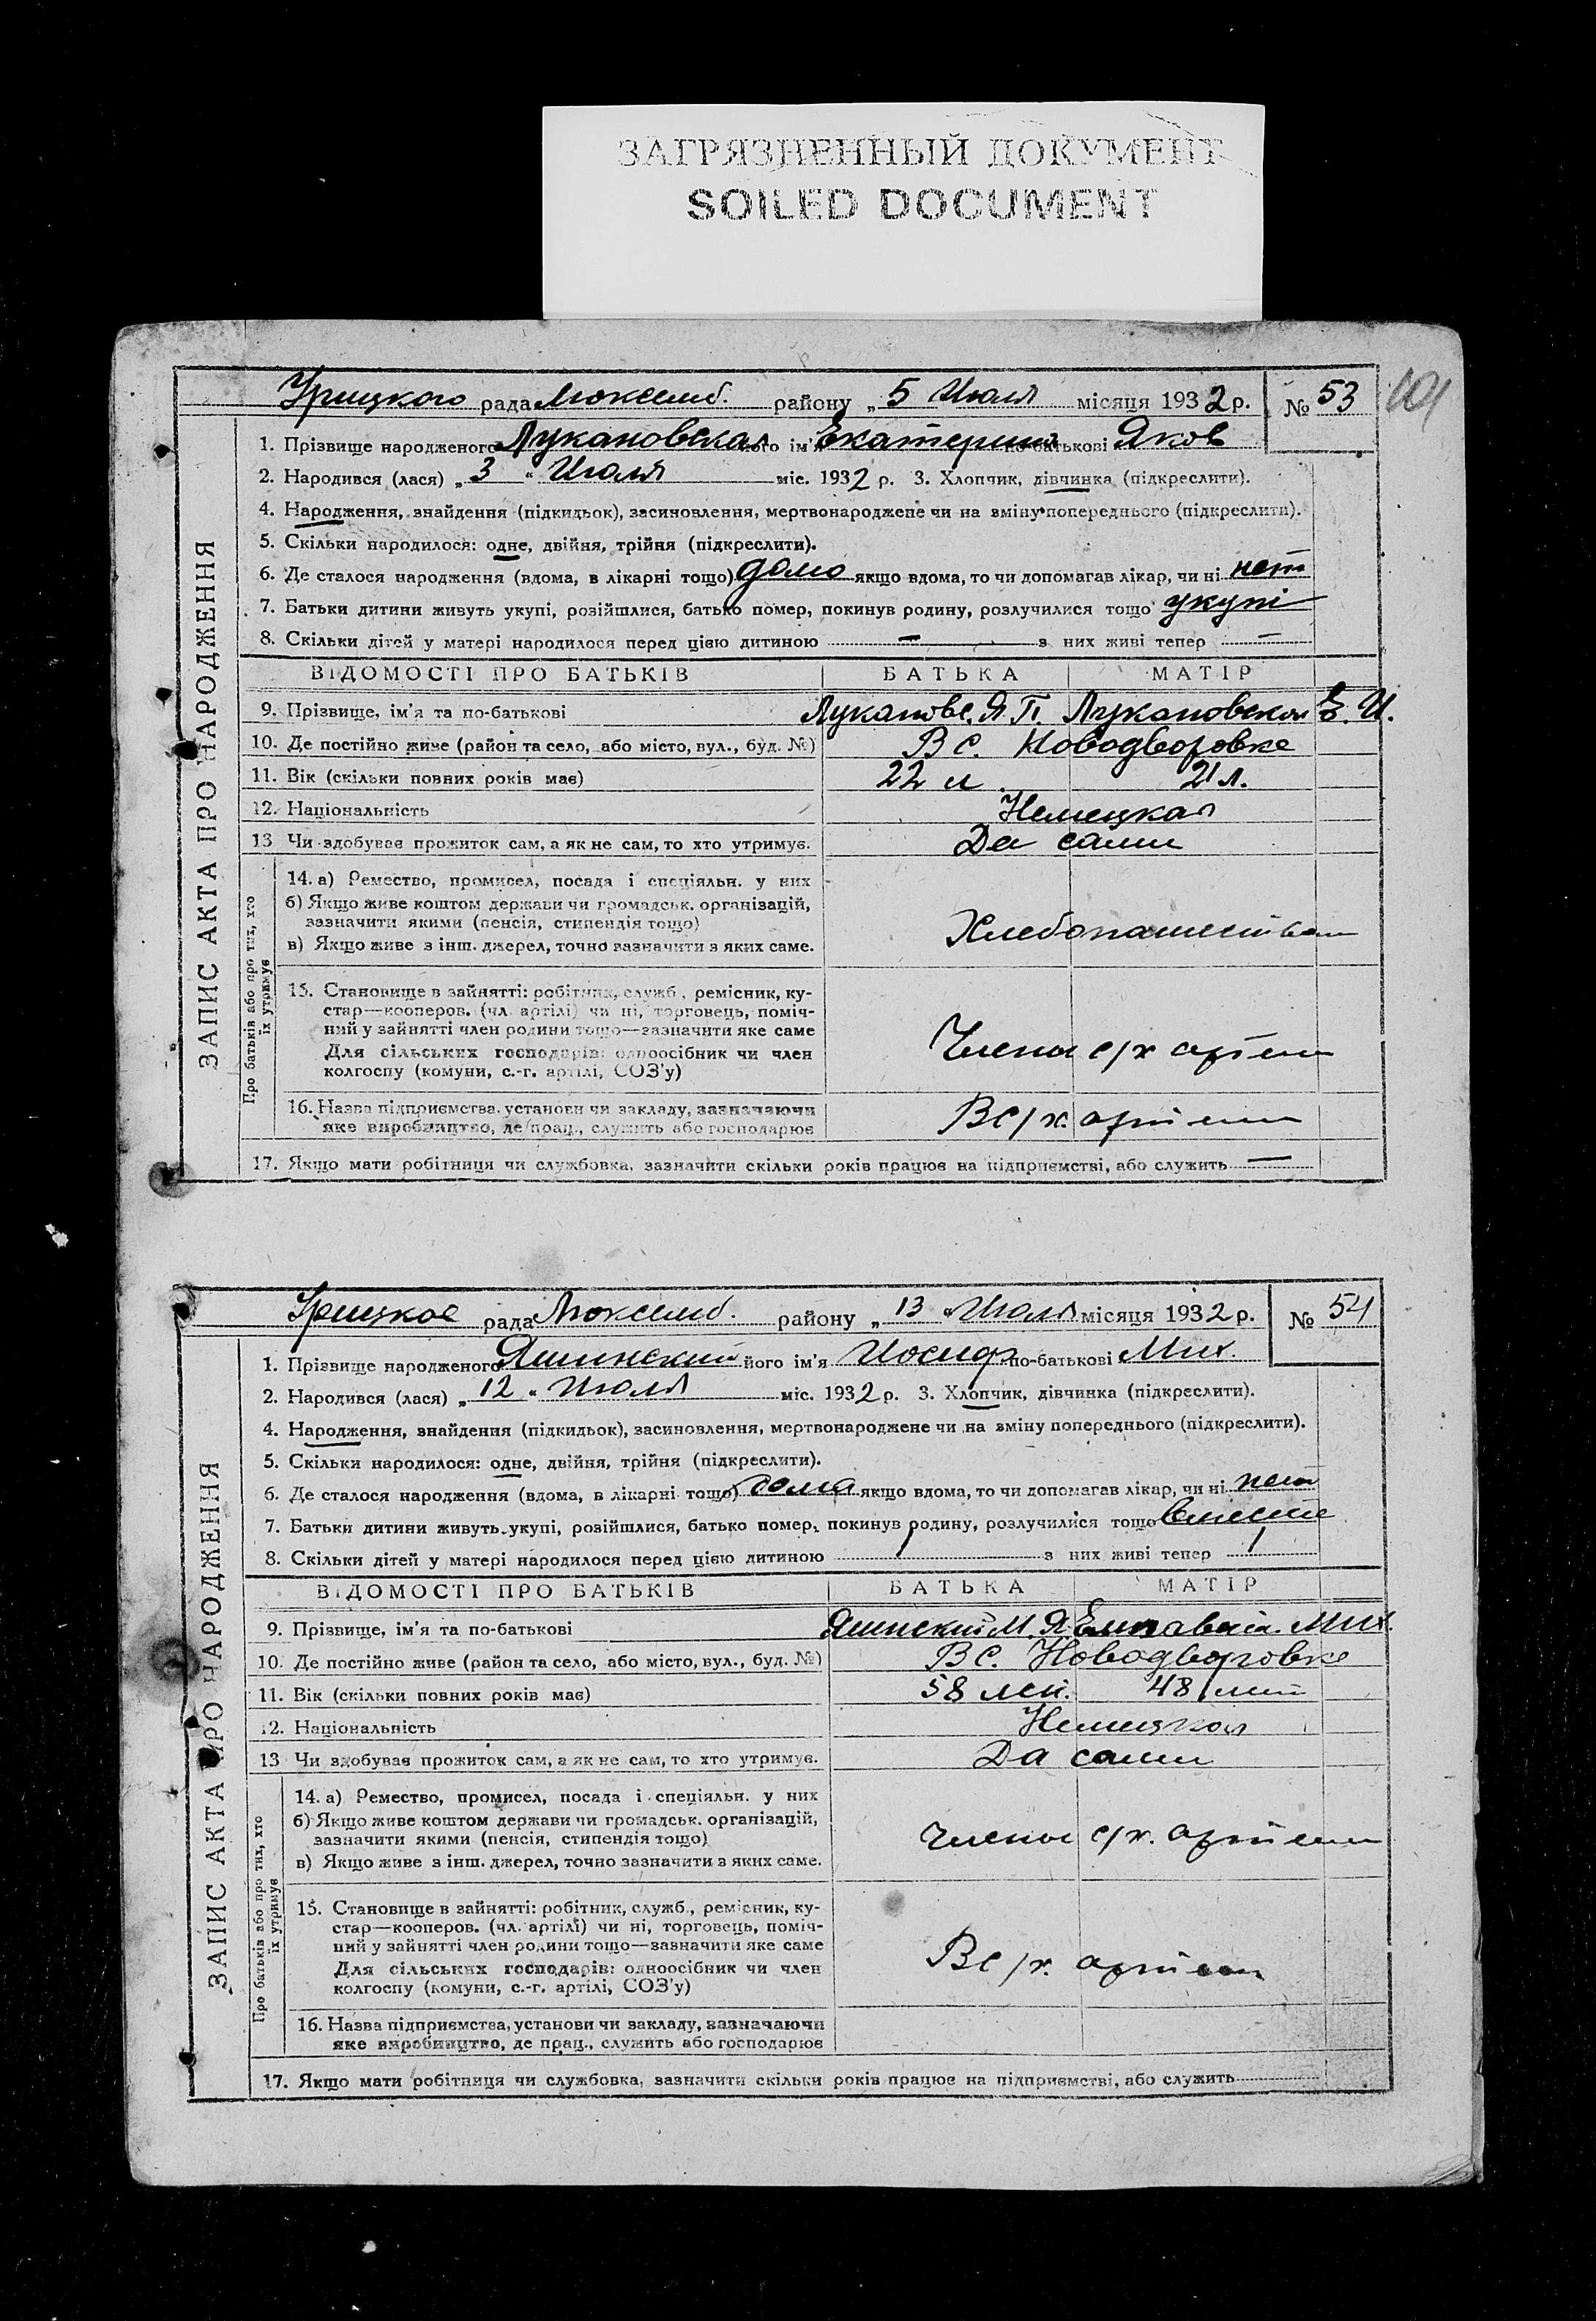 ЗАГРЯЗНЕННЫЙ ДОКУМЕНТ
SOILED DOCUMENT
Урицкого рада Люксемб. району „ 5 Июля місяця 1932 р. № 53
1. Прізвище народженого Лукановская його ім'я Екатерина по-батькові Яков
2. Народився (лася) „ 3 " Июля міс. 1932 р. 3. Хлопчик, дівчинка (підкреслити).
4. Народження, знайдення (підкидьок), засиновлення, мертвонароджене чи на зміну попереднього (підкреслити).
5. Скільки народилося: одне, двійня, трійня (підкреслити).
6. Де сталося народження (вдома, в лікарні тощо) дома якщо вдома, то чи допомагав лікар, чи ні нет
7. Батьки дитини живуть укупі, розійшлися, батько помер, покинув родину, розлучилися тощо укупі
8. Скільки дітей у матері народилося перед цією дитиною — з них живі тепер —
ЗАПИС АКТА ПРО НАРОДЖЕННЯ
ВІДОМОСТІ ПРО БАТЬКІВ БАТЬКА МАТІР
9. Прізвище, ім'я та по-батькові Лукановс. Я. П. Лукановская Е. И.
10. Де постійно живе (район та село, або місто, вул., буд. №) В с. Новодворовке
11. Вік (скільки повних років має) 22 л. 21 л.
12. Національність Немецкая
13 Чи здобуває прожиток сам, а як не сам, то хто утримує. Да сами
Про батьків або про тих, хто їх утримує
14. а) Ремество, промисел, посада і спеціяльн. у них
б) Якщо живе коштом держави чи громадськ. організацій,
зазначити якими (пенсія, стипендія тощо)
в) Якщо живе з інш. джерел, точно зазначити з яких саме.
Хлебопашеством
15. Становище в зайнятті: робітник, служб., ремісник, ку-
стар—кооперов. (чл. артілі) чи ні, торговець, поміч-
ний у зайнятті член родини тощо—зазначити яке саме
Для сільських господарів: одноосібник чи член
колгоспу (комуни, с.-г. артілі, СОЗ'у)
Члены с/х артели
16. Назва підприємства, установи чи закладу, зазначаючи
яке виробництво, де прац., служить або господарює
В с/х. артели
17. Якщо мати робітниця чи службовка, зазначити скільки років працює на підприємстві, або служить —
Урицкое рада Люксемб. району „ 13 " Июля місяця 1932 р. № 54
1. Прізвище народженого Яшинский його ім'я Иосиф по-батькові Мих.
2. Народився (лася) „ 12 " Июля міс. 1932 р. 3. Хлопчик, дівчинка (підкреслити).
4. Народження, знайдення (підкидьок), засиновлення, мертвонароджене чи на зміну попереднього (підкреслити).
5. Скільки народилося: одне, двійня, трійня (підкреслити).
6. Де сталося народження (вдома, в лікарні тощо) дома якщо вдома, то чи допомагав лікар, чи ні нет
7. Батьки дитини живуть укупі, розійшлися, батько помер, покинув родину, розлучилися тощо вместе
8. Скільки дітей у матері народилося перед цією дитиною 1 з них живі тепер 1
ЗАПИС АКТА ПРО НАРОДЖЕННЯ
ВІДОМОСТІ ПРО БАТЬКІВ БАТЬКА МАТІР
9. Прізвище, ім'я та по-батькові Яшинский М. Я. Елизавета. Мих.
10. Де постійно живе (район та село, або місто, вул., буд. №) В с. Новодворовке
11. Вік (скільки повних років має) 58 лет. 48 лет
12. Національність Немецкая
13 Чи здобуває прожиток сам, а як не сам, то хто утримує. Да сами
Про батьків або про тих, хто їх утримує
14. а) Ремество, промисел, посада і спеціяльн. у них
б) Якщо живе коштом держави чи громадськ. організацій,
зазначити якими (пенсія, стипендія тощо)
в) Якщо живе з інш. джерел, точно зазначити з яких саме.
Члены с/х. артели
15. Становище в зайнятті: робітник, служб., ремісник, ку-
стар—кооперов. (чл. артілі) чи ні, торговець, поміч-
ний у зайнятті член родини тощо—зазначити яке саме
Для сільських господарів: одноосібник чи член
колгоспу (комуни, с.-г. артілі, СОЗ'у)
В с/х. артели
16. Назва підприємства, установи чи закладу, зазначаючи
яке виробництво, де прац., служить або господарює
17. Якщо мати робітниця чи службовка, зазначити скільки років працює на підприємстві, або служить